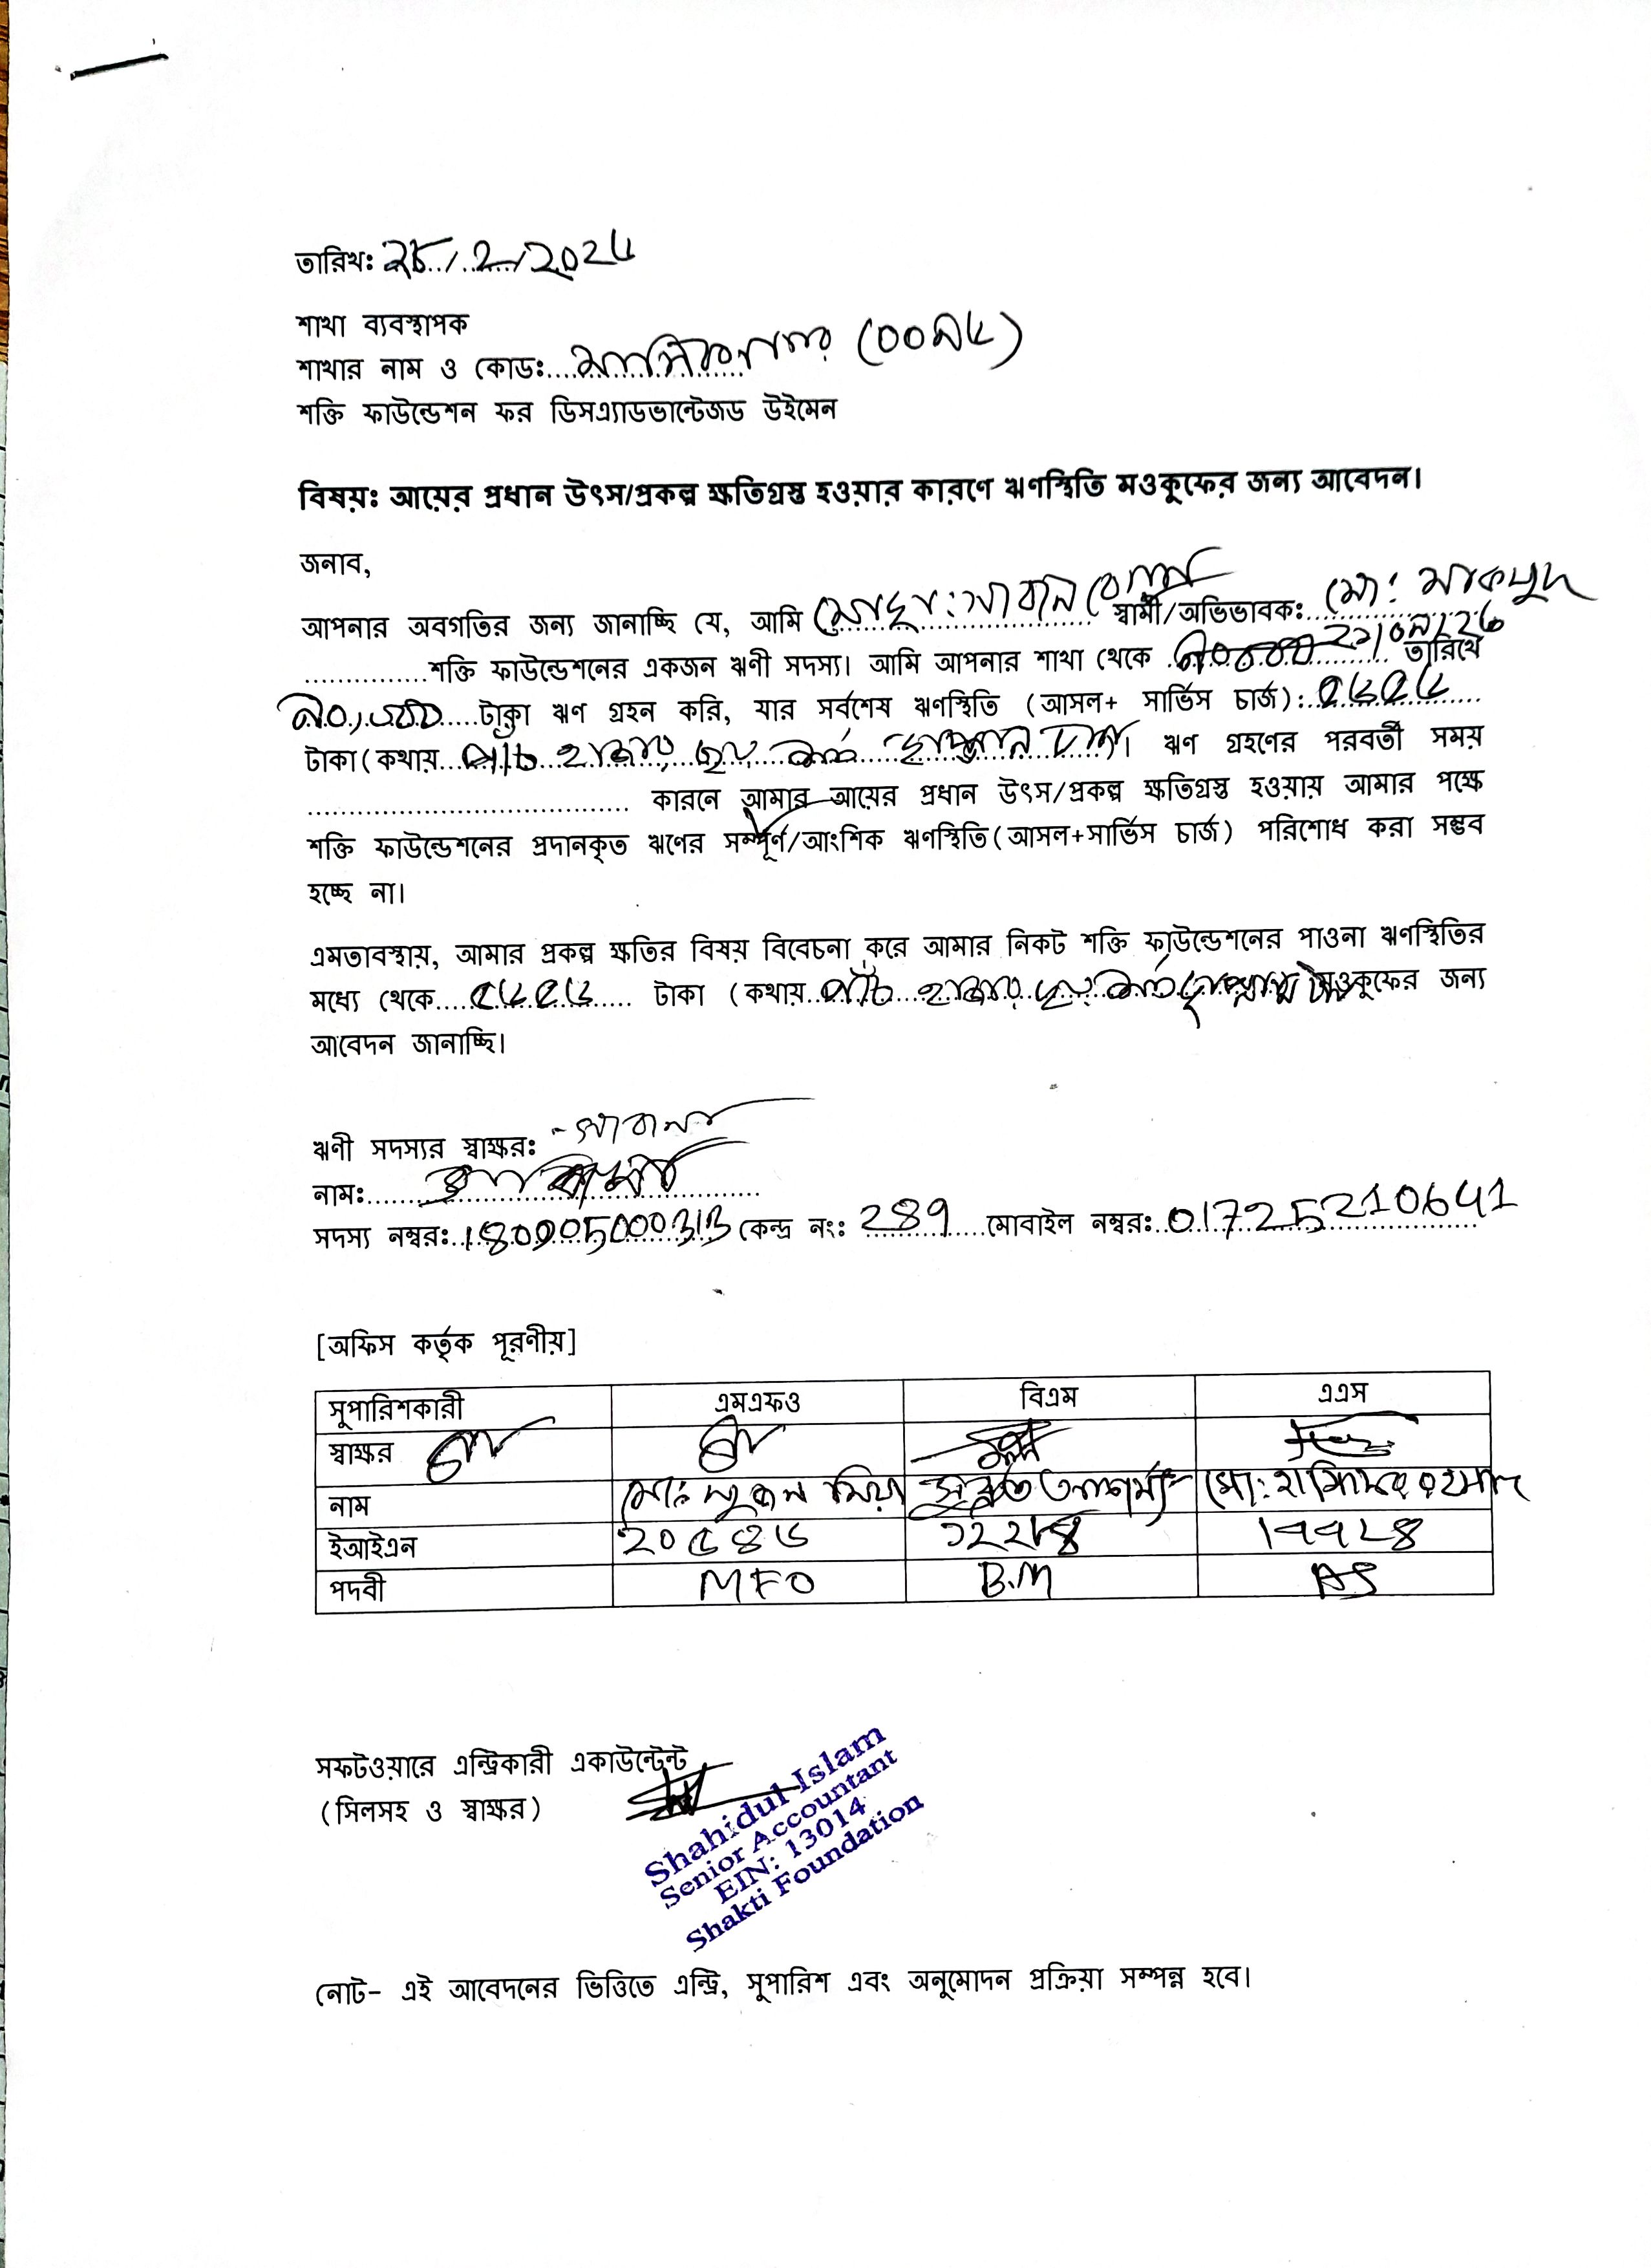 তারিখঃ
শাখা ব্যবস্থাপক
শাখার নাম ও কোডঃ
শক্তি ফাউন্ডেশন ফর ডিসএ্যাডভান্টেজড উইমেন
বিষয়ঃ আয়ের প্রধান উৎস/প্রকল্প ক্ষতিগ্রস্ত হওয়ার কারণে ঋণস্থিতি মওকুফের জন্য আবেদন।
জনাব,
আপনার অবগতির জন্য জানাচ্ছি যে, আমি স্বামী/অভিভাবকঃ
শক্তি ফাউন্ডেশনের একজন ঋণী সদস্য। আমি আপনার শাখা থেকে তারিখে
টাকা ঋণ গ্রহন করি, যার সর্বশেষ ঋণস্থিতি (আসল+ সার্ভিস চার্জ): ৫৬৫৬
টাকা (কথায় পাঁচ হাজার ছয় শত ছাপ্পান টাকা। ঋণ গ্রহণের পরবর্তী সময়
কারনে আমার আয়ের প্রধান উৎস/প্রকল্প ক্ষতিগ্রস্ত হওয়ায় আমার পক্ষে
শক্তি ফাউন্ডেশনের প্রদানকৃত ঋণের সম্পূর্ণ/আংশিক ঋণস্থিতি (আসল+সার্ভিস চার্জ) পরিশোধ করা সম্ভব
হচ্ছে না।
এমতাবস্থায়, আমার প্রকল্প ক্ষতির বিষয় বিবেচনা করে আমার নিকট শক্তি ফাউন্ডেশনের পাওনা ঋণস্থিতির
মধ্যে থেকে ৫৬৫৬ টাকা (কথায় পাঁচ হাজার ছয় শত মওকুফের জন্য
আবেদন জানাচ্ছি।
ঋণী সদস্যর স্বাক্ষরঃ
নামঃ
সদস্য নম্বরঃ কেন্দ্র নং: 289 মোবাইল নম্বরঃ 01725210641
[অফিস কর্তৃক পূরণীয়]
সুপারিশকারী এমএফও বিএম এএস
স্বাক্ষর
নাম মোঃ মিয়া মো: রহমান
ইআইএন ২০৫৪৬
পদবী MFO B.M AS
সফটওয়ারে এন্ট্রিকারী একাউন্টেন্ট
(সিলসহ ও স্বাক্ষর)
Shahidul Islam
Senior Accountant
EIN: 13014
Shakti Foundation
নোট- এই আবেদনের ভিত্তিতে এন্ট্রি, সুপারিশ এবং অনুমোদন প্রক্রিয়া সম্পন্ন হবে।